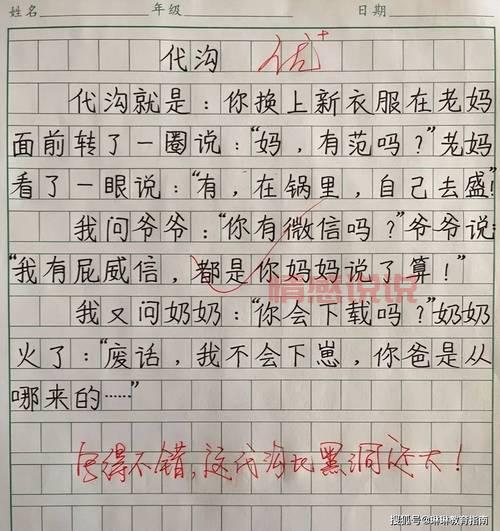 姓名 年级 日期
代沟 优+
代沟就是：你换上新衣服在老妈
面前转了一圈说：“妈，有范吗？”老妈
看了一眼说：“有，在锅里，自己去盛！”
我问爷爷：“你有微信吗？”爷爷说：
“我有屁威信，都是你妈妈说了算！”
情感说说
我又问奶奶：“你会下载吗？”奶奶
火了：“废话，我不会下崽，你爸是从
哪来的……”
写得不错，这代沟比黑洞还大！
搜狐号@琳琳教育指南